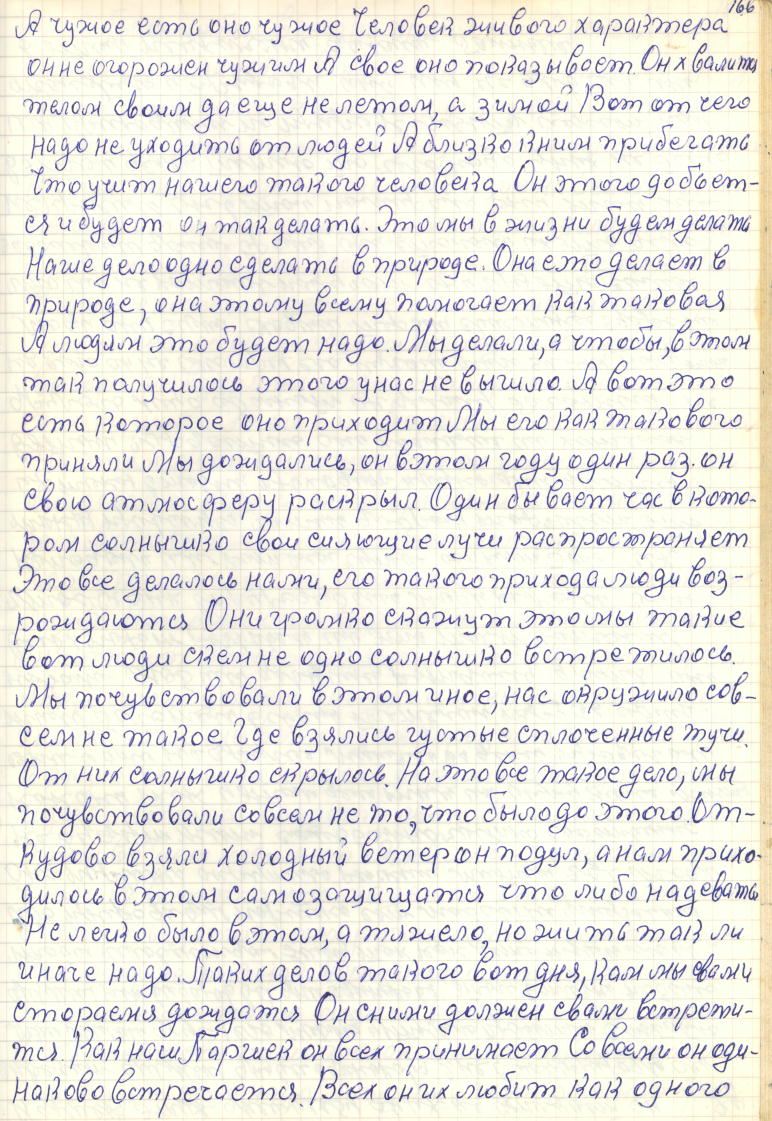 166
А чужое есть оно чужое Человек живого характера
он не огорожен чужим А свое оно показывает. Он хвалится
телом своим да еще не летом, а зимой Вот от чего
надо не уходить от людей А близко к ним прибегать
Что учит нашего такого человека Он этого добьет-
ся и будет он так делать. Это мы в жизни будем делать
Наше дело одно сделать в природе. Она это делает в
природе, она этому всему помогает как таковая
А людям это будет надо. Мы делали, а чтобы, в этом
так получилось этого у нас не вышло. А вот это
есть которое оно приходит Мы его как такового
приняли Мы дождались, он в этом году один раз. он
свою атмосферу раскрыл. Один бывает час в кото-
ром солнышко свои сияющие лучи распространяет
Это все делалось нами, его такого прихода люди воз-
рождаются Они громко скажут это мы такие
вот люди с кем не одно солнышко встретилось.
Мы почувствовали в этом иное, нас окружило сов-
сем не такое Где взялись густые сплоченные тучи.
От них солнышко скрылось. На это все такое дело, мы
почувствовали совсем не то, что было до этого. От-
кудово взялся холодный ветер он подул, а нам прихо-
дилось в этом самозащищатся что либо надевать
Не легко было в этом, а тяжело, но жить так ли
иначе надо. Таких делов такого вот дня, как мы с вами
стораемся дождатся Он с ними должен с вами встрети-
тся. Как наш Паршек он всех принимает Со всеми он оди-
наково встречается. Всех он их любит как одного